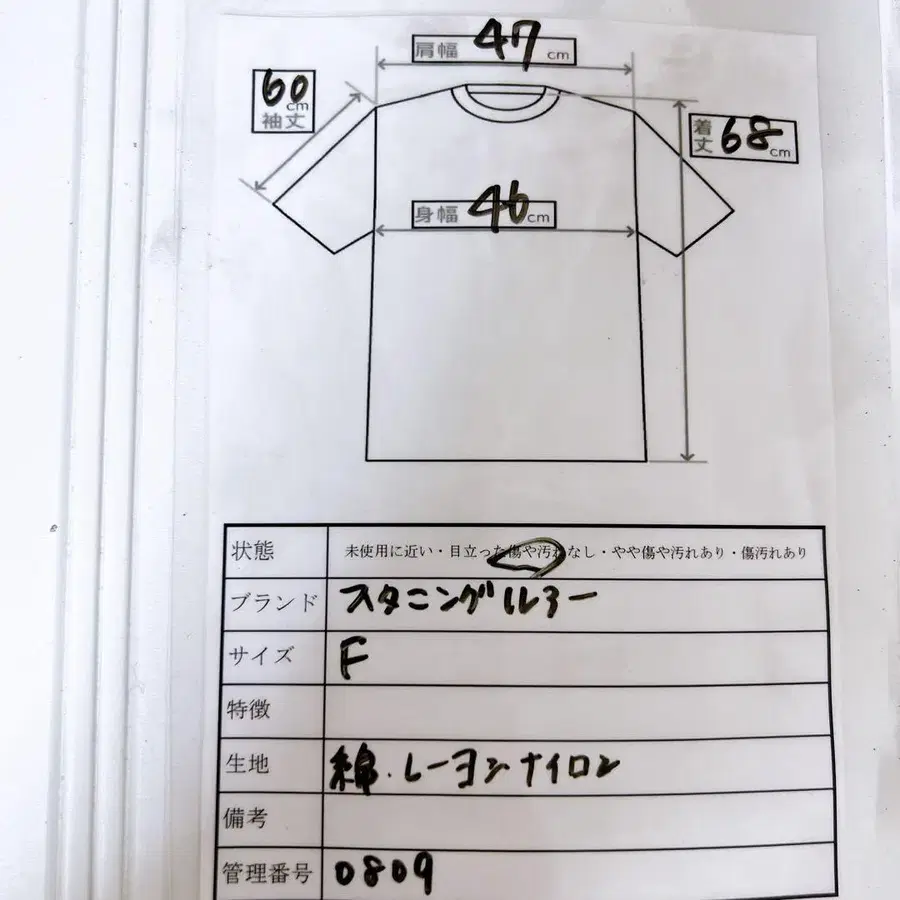 肩幅 47 cm
60 cm
袖丈
着丈 68 cm
身幅 46 cm
状態 未使用に近い・目立った傷や汚れなし・やや傷や汚れあり・傷汚れあり
ブランド スタニングルアー
サイズ F
特徴
生地 綿.レーヨンナイロン
備考
管理番号 0809